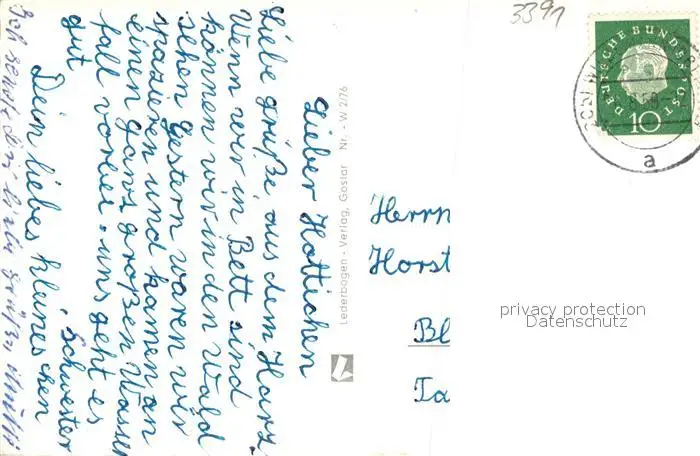 3391
DEUTSCHE BUNDESPOST
10
a
Lieber Hottichen
Liebe grüße aus dem Harz.
Wenn wir in Bett sind
können wir in den Wald
sehen gestern waren wir
spazieren und kamen an
einen ganz großen Wasser
fall vorbei. uns geht es
gut
Dein liebes kleines
Schwesterchen
Lederbogen - Verlag, Goslar Nr. - W 2/76
Herrn
Horst
Bl
Ta
privacy protection
Datenschutz